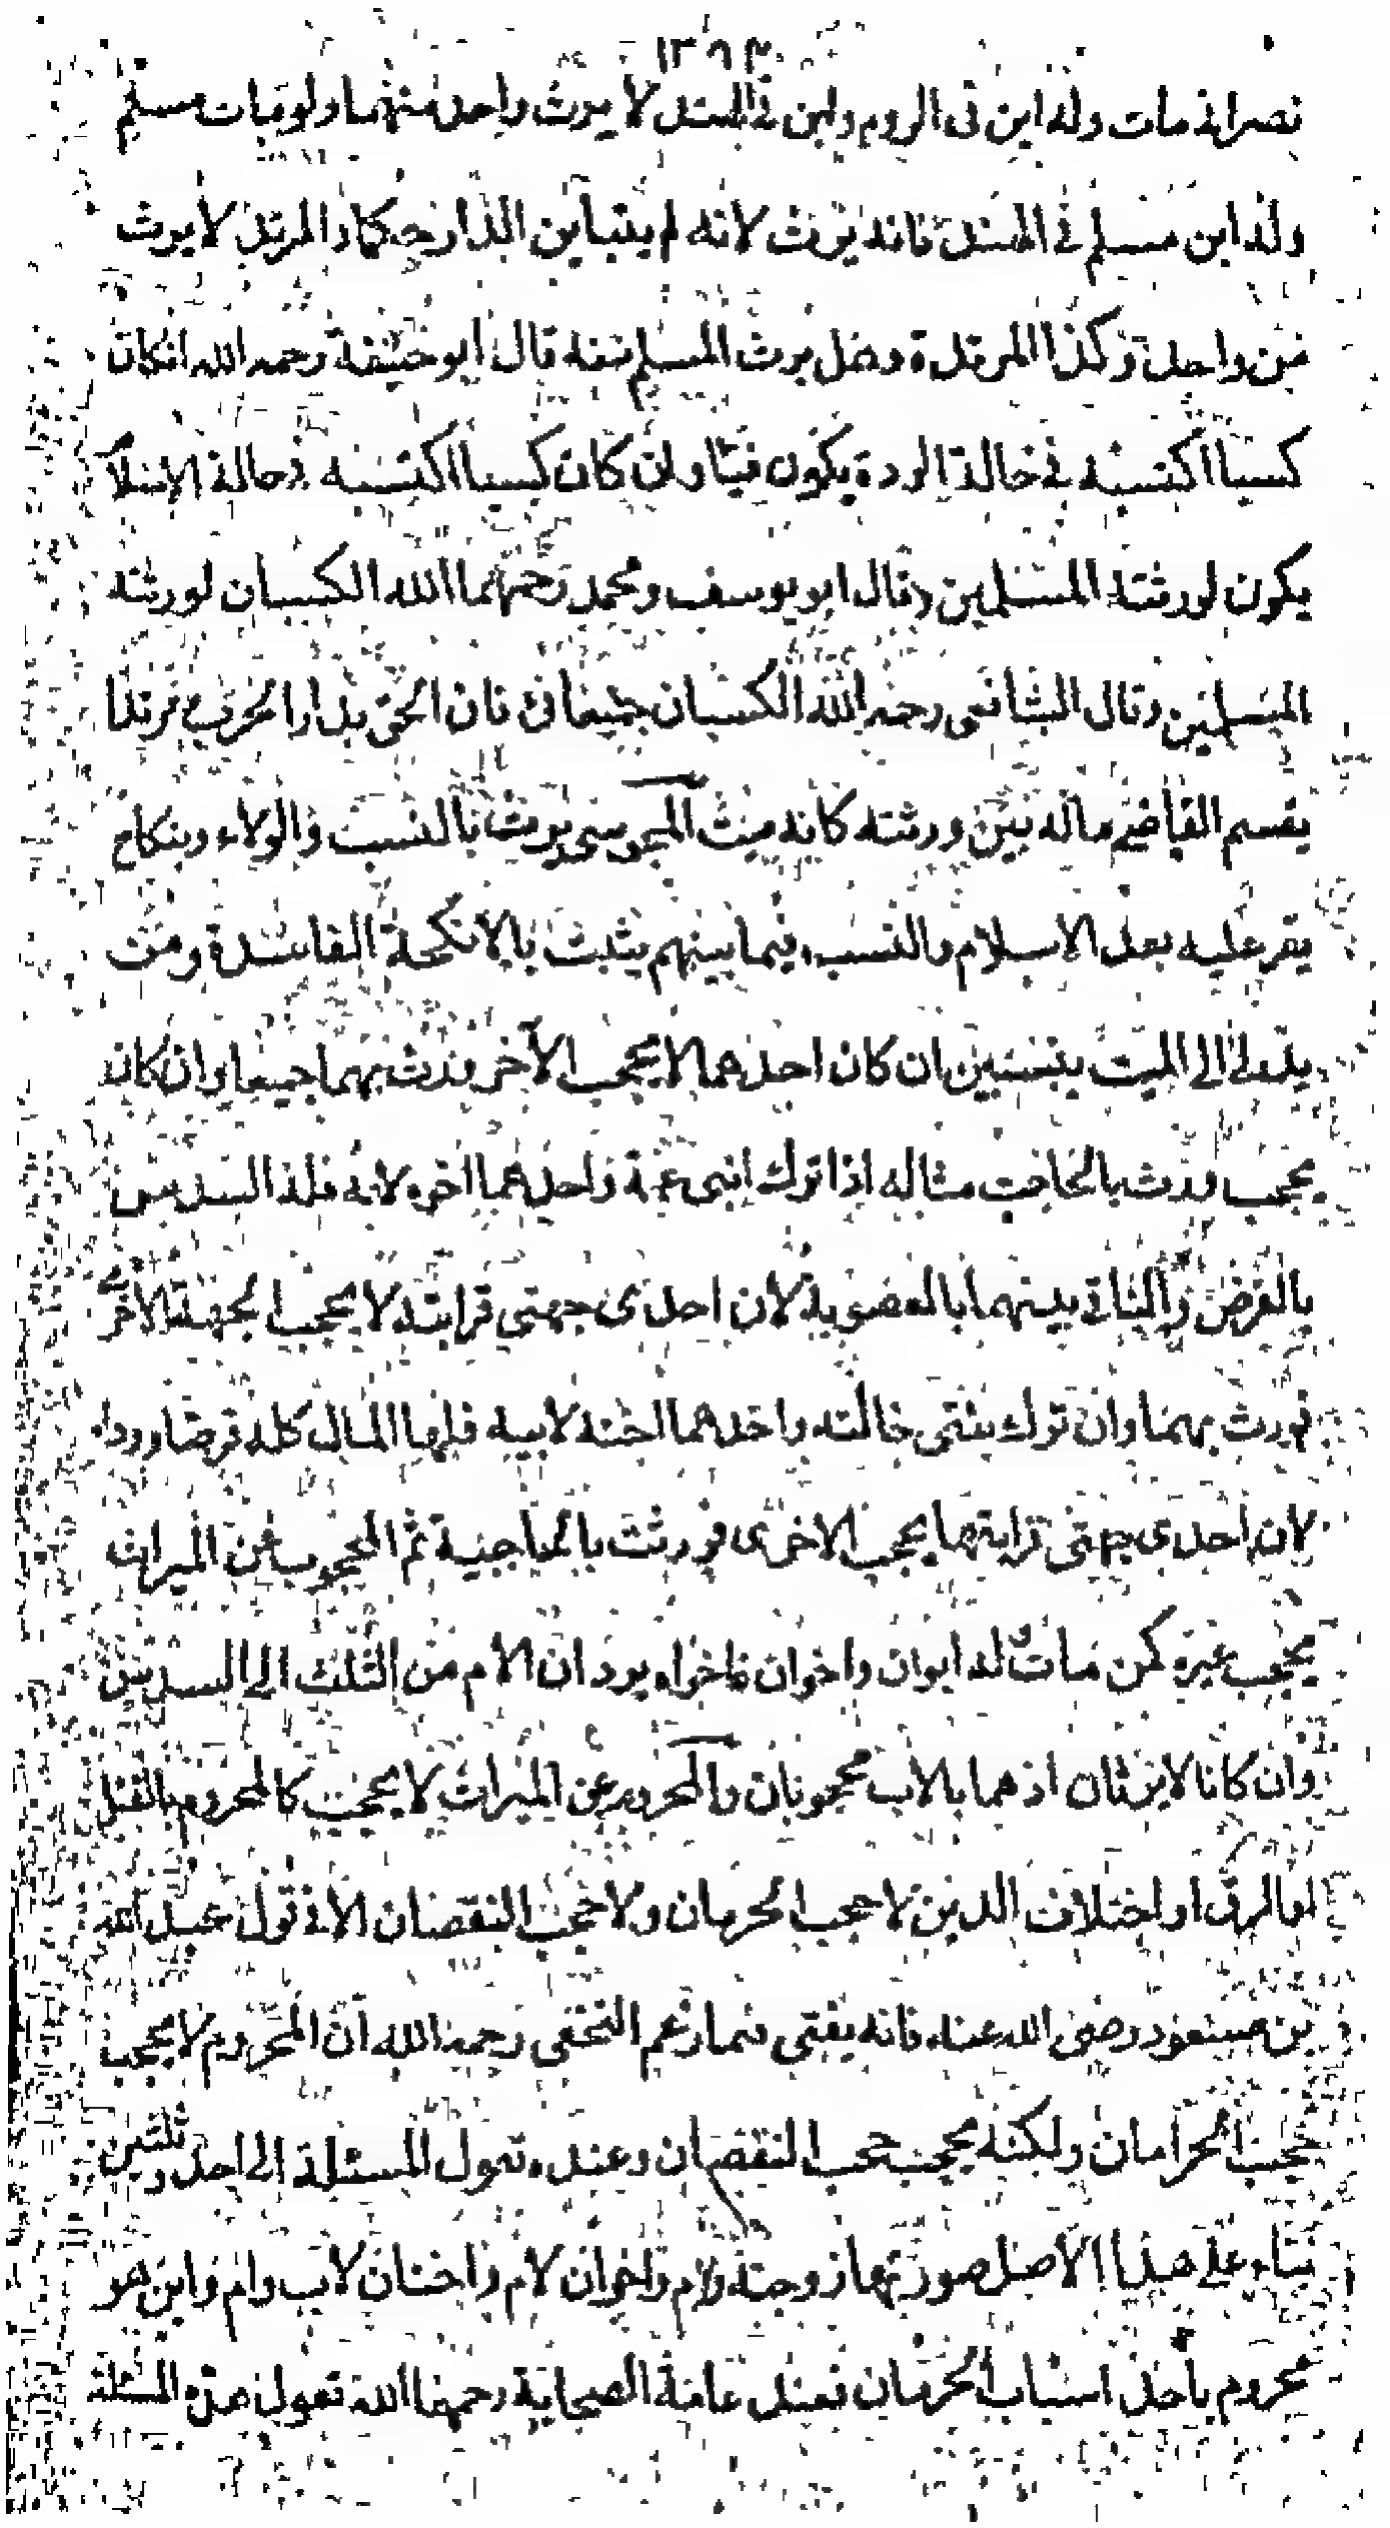 ١٣٩٣
نصرانى مات وله ابن فى الروم وابن فى الهند لا يرث واحد منهما ولو مات مسلم
وله ابن مسلم فى الهند فانه يرث لانه لم يتباين الدار حكما والمرتد لا يرث
من واحد وكذا المرتدة وهل يرث المسلم منه قال ابو حنيفة رحمه الله انكان
كسبا اكتسبه فى حالة الردة يكون فيئا وان كان كسبا اكتسبه فى حالة الاسلام
يكون لورثته المسلمين وقال ابو يوسف ومحمد رحمهما الله الكسبان لورثته
المسلمين وقال الشافعى رحمه الله الكسبان جميعا فئ فان الحق بدار الحرب مرتدا
يقسم القاضى ماله بين ورثته كانه ميت المجوسى يرث بالنسب والولاء وبنكاح
يقر عليه بعد الاسلام والنسب فيما بينهم يثبت بالانكحة الفاسدة ومن
يدلى الى الميت بنسبين ان كان احدهما لا يحجب الآخر ورث بهما جميعا وان كان
يحجب ورث بالحاجب مثاله اذا ترك ابنى عمة واحدهما اخوه لامه فله السدس
بالفرض والباقى بينهما بالعصوبة لان احدى جهتى قرابته لا يحجب الجهة الاخرى
فورث بهما وان ترك بنتى خالته واحدهما اخته لابيه فلها المال كله فرضا وردا
لان احدى جهتى قرابتها يحجب الاخرى فورثت بالحاجبة ثم المحجوب عن الميراث
يحجب غيره كمن مات له ابوان واخوان فاخواه يردان الام من الثلث الى السدس
وان كانا لا يرثان اذ هما بالاب محجوبان والمحروم عن الميراث لا يحجب كالمحروم بالقتل
او الرق او اختلاف الدين لا حجب الحرمان ولا حجب النقصان الا فى قول عبد الله
بن مسعود رضى الله عنه فانه يفتى فيما زعم النخعى رحمه الله ان المحروم لا يحجب
حجب الحرامان ولكنه يحجب حجب النقصان وعنده تعول المسئلة الى احد وثلثين
بناء على هذا الاصل صورتها زوجة وام واخوان لام واختان لاب وام وابن هو
محروم باحد اسباب الحرمان فعند عامة الصحابة رحمهما الله تعول هذه المسئلة